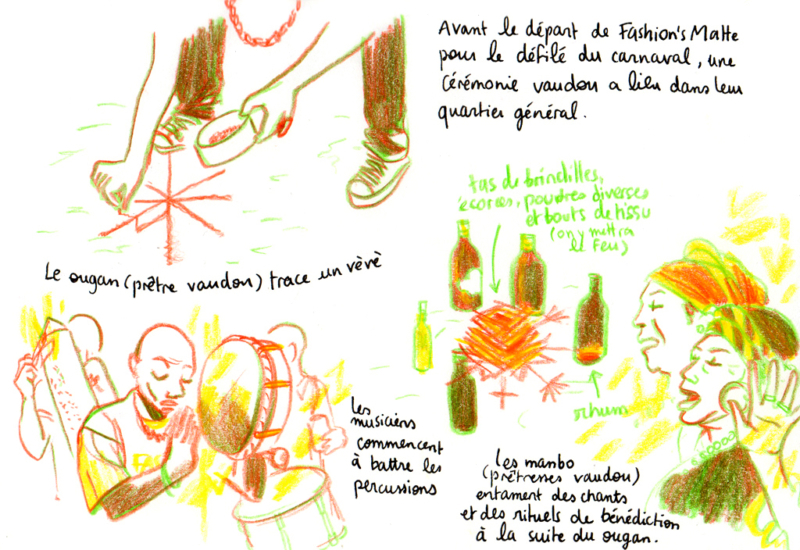 Avant le départ de Fashion's Matte
pour le défilé du carnaval, une
cérémonie vaudou a lieu dans leur
quartier général.
Le ougan (prêtre vaudou) trace un vèvè
tas de brindilles,
écorces, poudres diverses
et bouts de tissu
(on y mettra
le feu)
rhum
les
musiciens
commencent
à battre les
percussions
les manbo
(prêtresses vaudou)
entament des chants
et des rituels de bénédiction
à la suite du ougan.